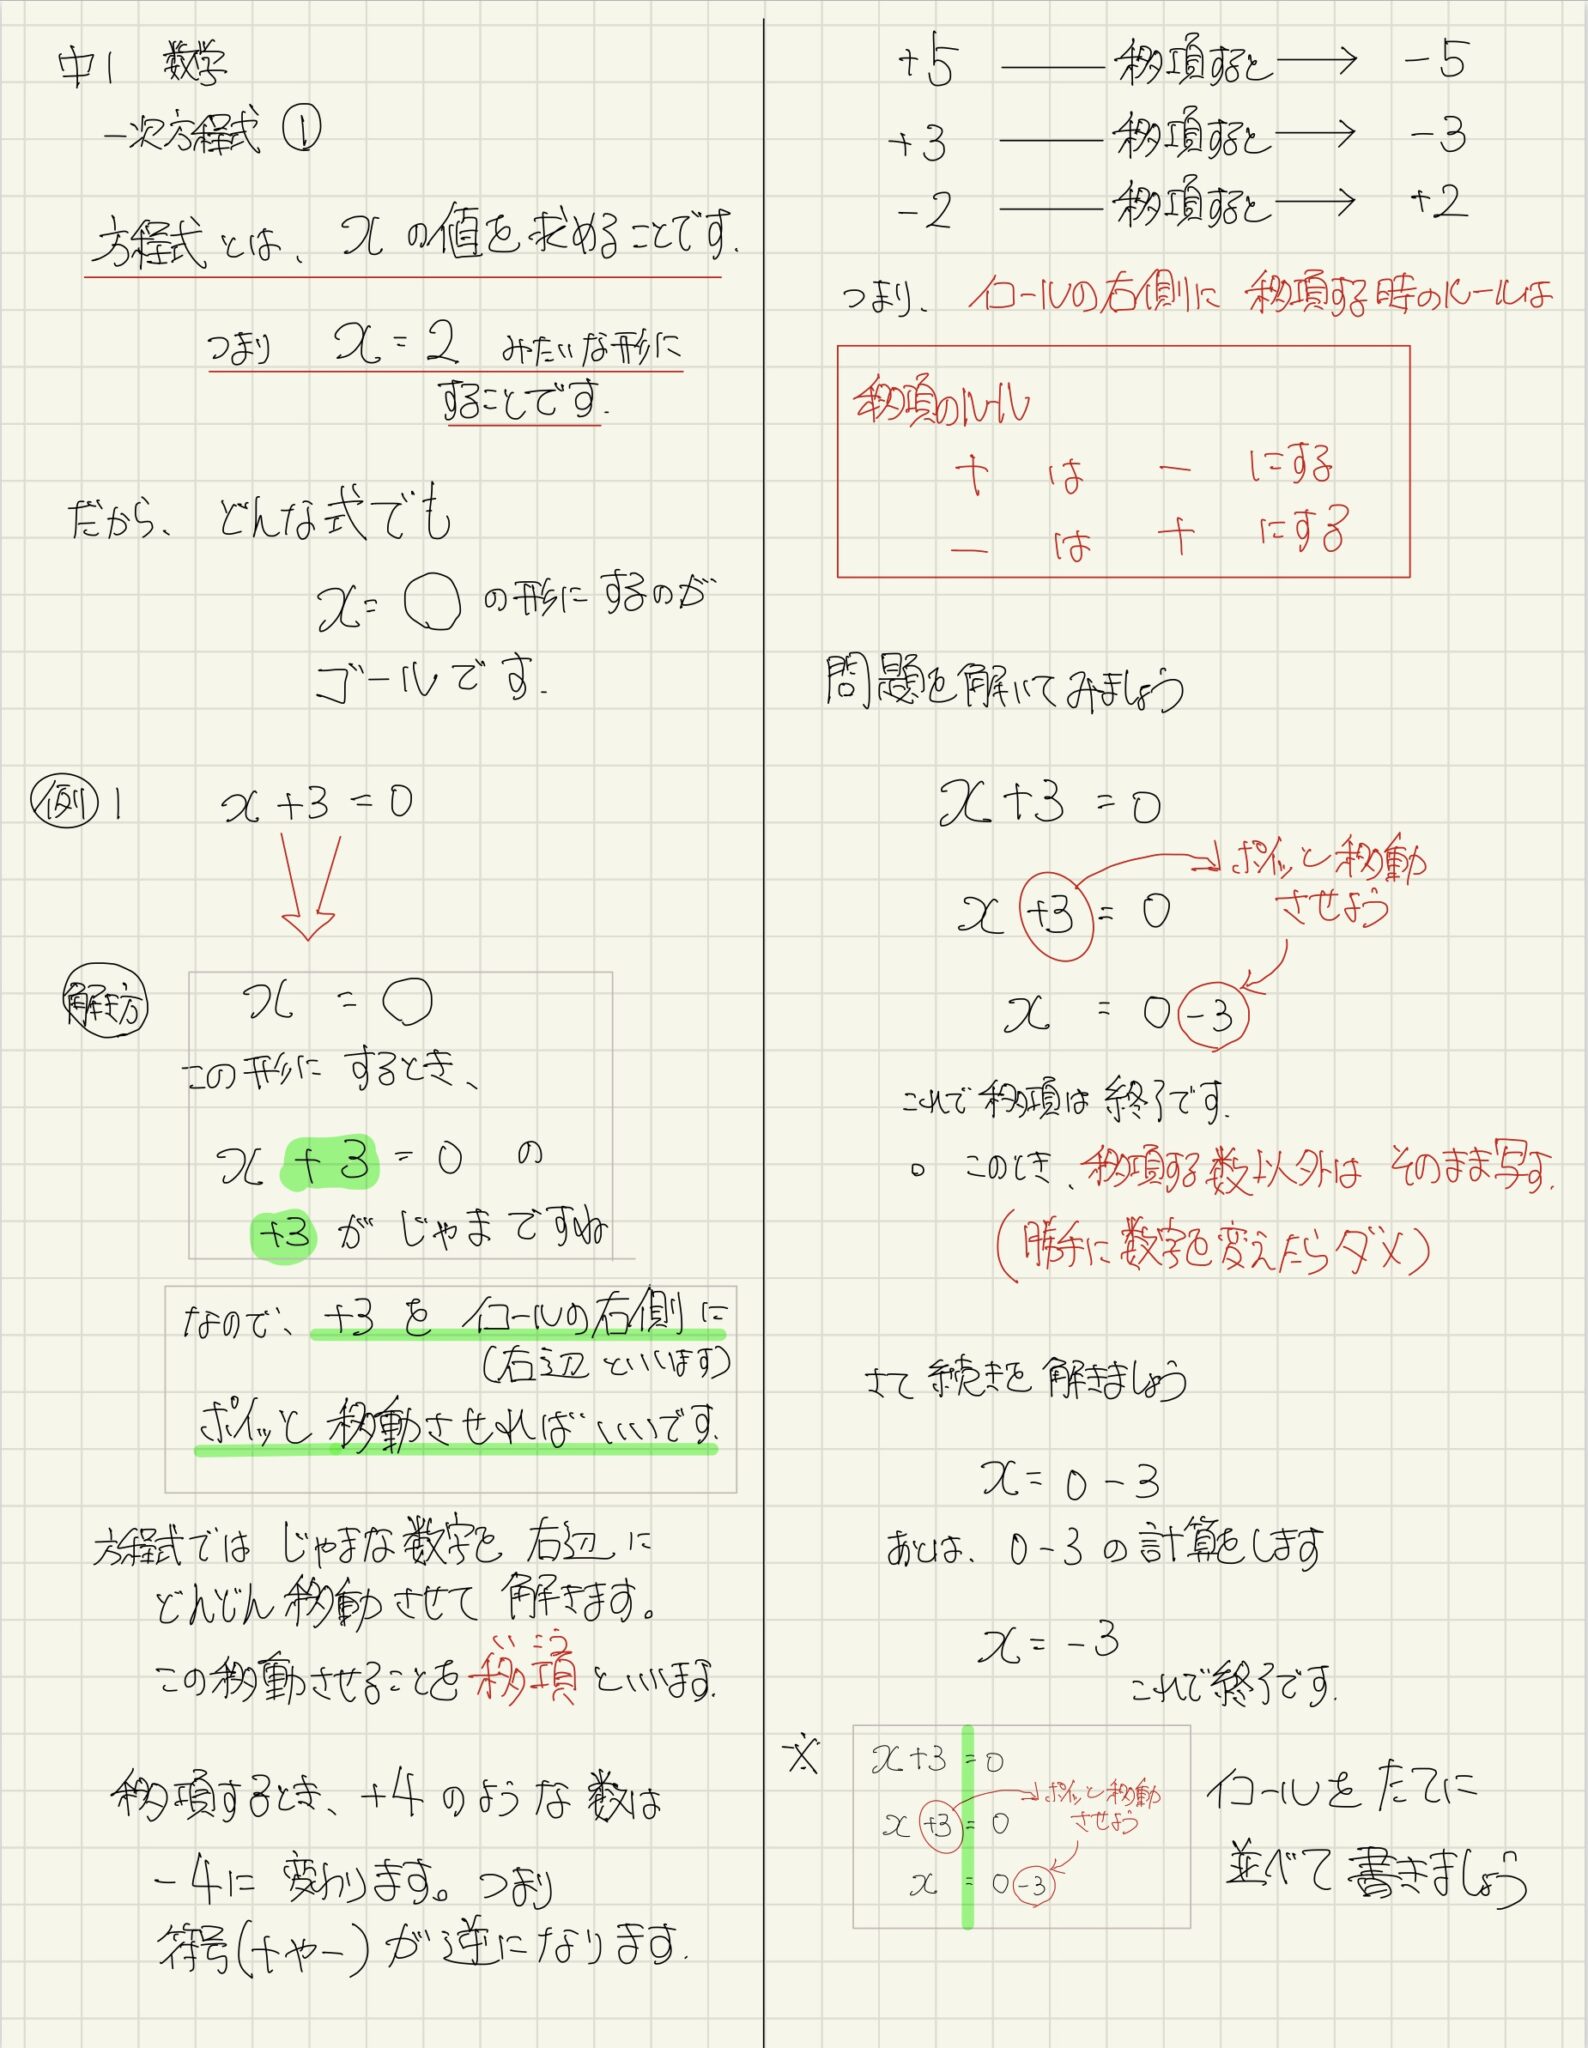 中1 数学
一次方程式 ①
方程式とは、xの値を求めることです.
つまり x=2 みたいな形に
することです.
だから、どんな式でも
x=○の形にするのが
ゴールです.
例1 x+3=0
解き方 x=○
この形にするとき、
x+3=0 の
+3がじゃまですね
なので、+3をイコールの右側に
(右辺といいます)
ポイッと移動させればいいです.
方程式ではじゃまな数字を右辺に
どんどん移動させて解きます。
いこう
この移動させることを移項といいます.
移項するとき、+4のような数は
-4に変わります。つまり
符号(+や-)が逆になります.
+5 移項すると→ -5
+3 移項すると→ -3
-2 移項すると→ +2
つまり、イコールの右側に移項する時のルールは
移項のルール
+ は - にする
- は + にする
問題を解いてみましょう
x+3=0
ポイッと移動
x+3=0 させよう
x=0-3
これで移項は終了です.
○このとき、移項する数以外はそのまま写す.
(勝手に数字を変えたらダメ)
さて続きを解きましょう
x=0-3
あとは、0-3の計算をします
x=-3
これで終了です.
※ x+3=0
ポイッと移動
x+3=0 させよう
x=0-3
イコールをたてに
並べて書きましょう